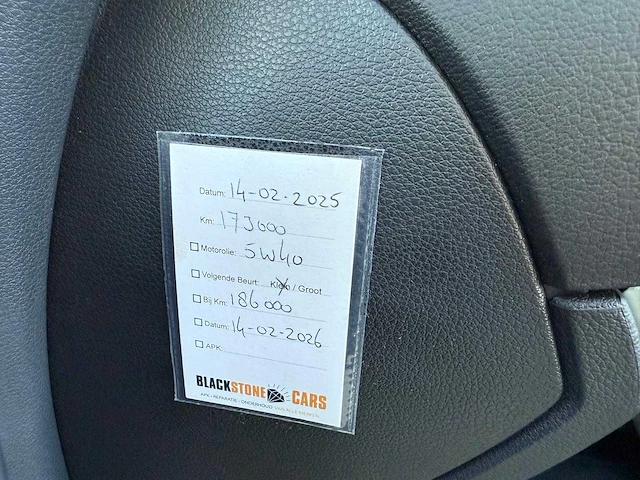 Datum: 14-02-2025
Km:
☐ Motorolie: 5W40
☐ Volgende Beurt: Klein / Groot
☐ Bij Km: 186000
☐ Datum: 14-02-2026
☐ APK:
BLACKSTONE CARS
APK • REPARATIE • ONDERHOUD VAN ALLE MERKEN